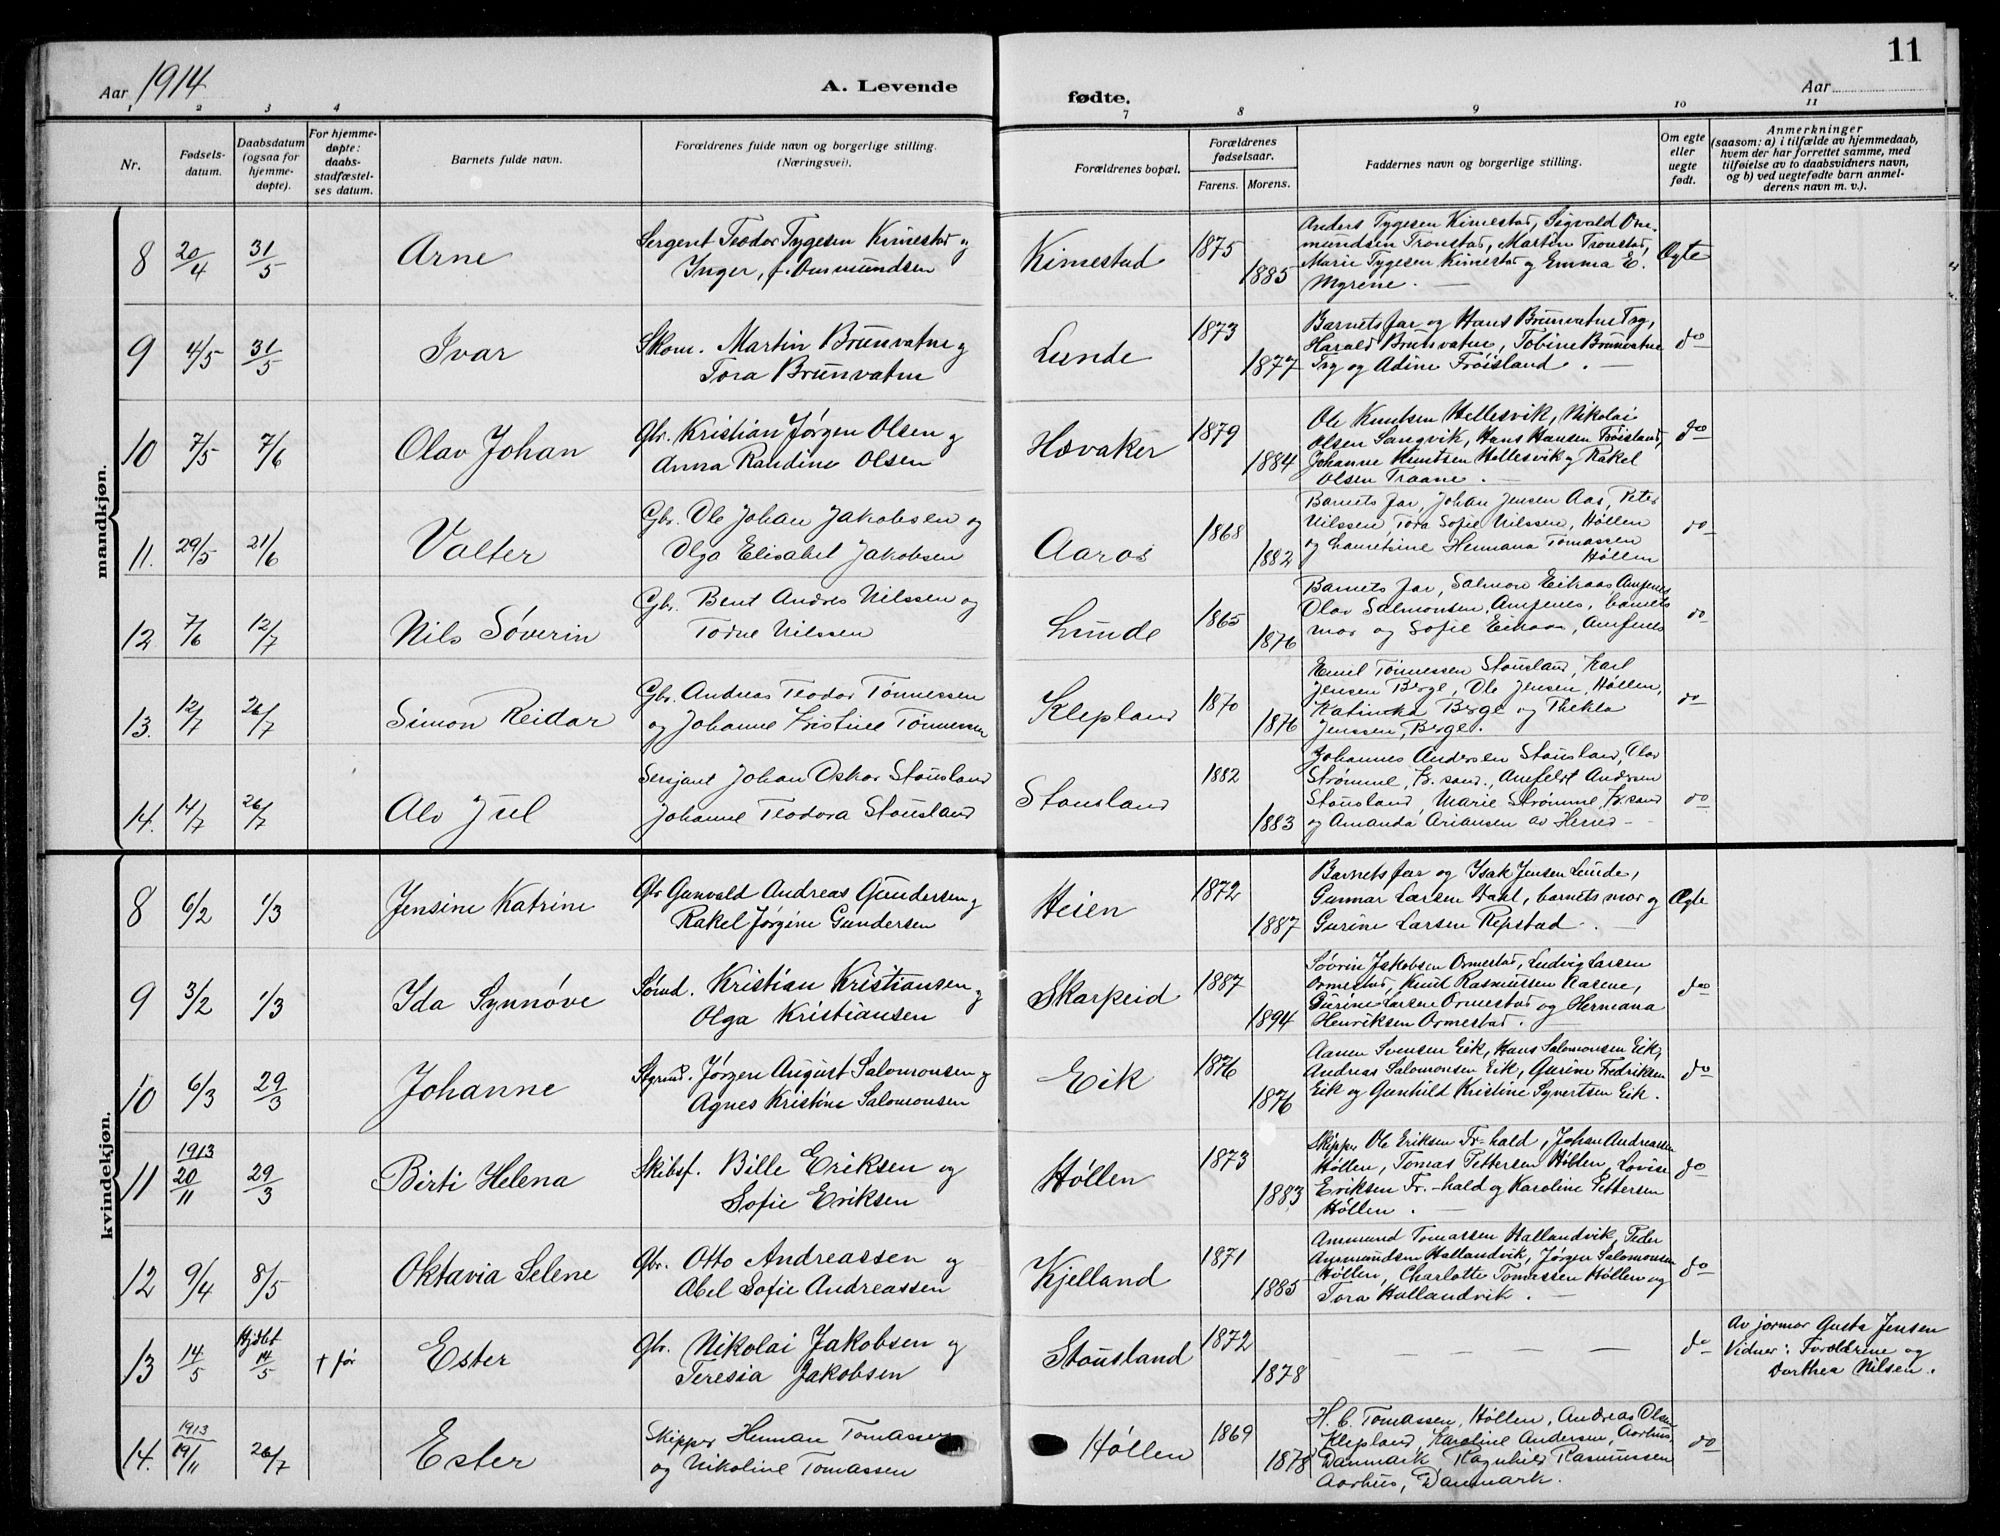 Aar 1914
A. Levende
fødte.
Aar
11
1 2 3 4 7 8 9 10 11
Nr.
Fødsels-
datum.
Daabsdatum
(ogsaa for
hjemme-
døpte).
For hjemme-
døpte:
daabs-
stadfæstel-
ses datum.
Barnets fulde navn.
Forældrenes fulde navn og borgerlige stilling.
(Næringsvei).
Forældrenes bopæl.
Forældrenes
fødselsaar.
Farens. Morens.
Faddernes navn og borgerlige stilling.
Om egte
eller
uegte
født.
Anmerkninger
(saasom: a) i tilfælde av hjemmedaab,
hvem der har forrettet samme, med
tilføielse av to daabsvidners navn,
og b) ved uegtefødte barn anmel-
derens navn m. v.).
mandkjøn.
8 20/4 31/5 Arne
Sergent Teodor Tygesen Kimestad og
Inger, f. Ommundsen
Kimestad 1875 1885
Anders Tygesen Kimestad, Sigvald Om-
mundsen Tronstad, Martin Tronstad,
Marie Tygesen Kimestad og Emma E.
Myrene. —
Ægte
9 4/5 31/5 Ivar
Skom. Martin Brunvatne og
Tora Brunvatne
Lunde 1873 1877
Barnets far og Hans Brunvatne Try,
Harald Brunvatne, Tobine Brunvatne
Try og Adine Frøisland. —
do
10 7/5 7/6 Olav Johan
Gbr. Kristian Jørgen Olsen og
Anna Randine Olsen
Hævaker 1879 1884
Ole Knutsen Hellesvik, Nikolai
Olsen Sangvik, Hans Hansen Frøisland,
Johanne Knutsen Hellesvik og Rakel
Olsen Traane. —
do
11. 29/5 21/6 Valter
Gbr. Ole Johan Jakobsen og
Olga Elisabet Jakobsen
Aaros 1868 1882
Barnets far, Johan Jensen Aas, Peter
Nilssen, Tora Sofie Nilssen, Høllen
og Lauretsine Hermana Tomassen
Høllen
do
12. 7/6 12/7 Nils Söverin
Gbr. Bent Andres Nilssen og
Torne Nilssen
Lunde 1865 1876
Barnets far, Salmon Eikaas Amfenes
Olav Salmonsen, Amfenes, barnets
mor og Sofie Eikaas, Amfenes
do
13. 12/7 26/7 Simon Reidar
Gbr. Andreas Teodor Tönnessen
og Johanne Kristine Tönnessen
Klepland 1870 1876
Emil Tönnessen Stousland, Karl
Jensen Berge, Ole Jensen, Høllen,
Katinka Berge og Thekla
Jenssen, Berge.
do
14. 14/7 26/7 Alv Jul
Sersjant Johan Oskar Stousland
Johanne Teodora Stousland
Stousland 1882 1883
Johannes Andersen Stousland, Olav
Strømme, Kr. sand., Amfeldt Andersen
Stousland, Marie Strømme, Kr. sand
og Amanda Ariansen av Herred —
do
kvindekjøn.
8 6/2 1/3 Jensine Katrine
Gbr Gunvald Andreas Gundersen og
Rakel Jørgine Gundersen
Heien 1872 1887
Barnets far og Isak Jensen Lunde,
Gunnar Larsen Dahl, barnets mor og
Gurine Larsen Repstad. —
Ægte
9 3/2 1/3 Ida Synnøve
Sömd. Kristian Kristiansen og
Olga Kristiansen
Skarpeid 1887 1894
Søvrin Jakobsen Ormestad, Ludvig Larsen
Ormestad, Knud Rasmussen Aasene,
Gurine Larsen Ormestad og Hermana
Henriksen Ormestad. —
do
10 6/3 29/3 Johanne
Stgrund. Jørgen August Salomonsen og
Agnes Kristine Salomonsen
Eik 1876 1876
Aanen Svensen Eik, Hans Salomonsen Eik,
Andreas Salomonsen Eik, Gurine Fredriksen
Eik og Gunhild Kristine Syvertsen Eik.
do
11 1913 20/11 29/3 Birti Helena
Skibsf. Bille Eriksen og
Sofie Eriksen
Høllen 1873 1883
Skipper Ole Eriksen Fr-hald, Johan Andreassen
Høllen, Tomas Pettersen Høllen, Lovise
Eriksen Fr.-hald og Karoline Pettersen
Høllen. —
do
12 9/4 8/5 Oktavia Selene
Gbr. Otto Andreassen og
Abel Sofie Andreassen
Kjelland 1871 1885
Ammund Tomassen Hallandvik, Peder
Ammundsen Hallandvik, Jørgen Salomonsen
Høllen, Charlotte Tomassen Høllen og
Tora Hallandvik. —
do
13 14/5 Hjdbt 14/5 † før Ester
Gbr. Nikolai Jakobsen og
Teresia Jakobsen
Stousland 1872 1878
— — — — — —
do
Av jormor Gusta Jensen
Vidner: Foreldrene og
Dorthea Nilsen.
14. 1913 19/11 26/7 Ester
Skipper Herman Tomassen
og Nikoline Tomassen
Høllen 1869 1878
H. C. Tomassen, Høllen, Andreas Olsen
Klepland, Karoline Andersen, Aarhus,
Danmark Ragnhild Rasmussen
Aarhus, Danmark.
do